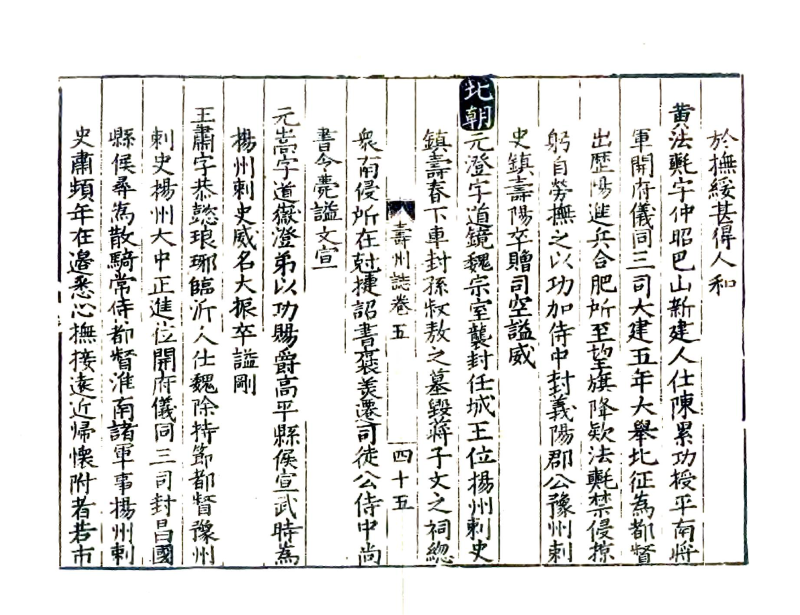 於撫綏甚得人和
黃法𣰰字仲昭巴山新建人仕陳累功授平南將
軍開府儀同三司大建五年大舉北征為都督
出歷陽進兵合肥所至望旗降欵法𣰰禁侵掠
躬自勞撫之以功加侍中封義陽郡公豫州刺
史鎮壽陽卒贈司空謚威
北朝
元澄字道鏡魏宗室襲封任城王位揚州刺史
鎮壽春下車封孫叔敖之墓毀蔣子文之祠總
衆南侵所在尅捷詔書褒羙遷司徒公侍中尚
壽州誌卷五
四十五
書令薨謚文宣
元嵩字道嶽澄弟以功賜爵高平縣侯宣武時為
揚州刺史威名大振卒謚剛
王肅字恭懿琅琊臨沂人仕魏除持節都督豫州
刺史揚州大中正進位開府儀同三司封昌國
縣侯尋為散騎常侍都督淮南諸軍事揚州刺
史肅頻年在邊悉心撫接遠近歸懷附者若市